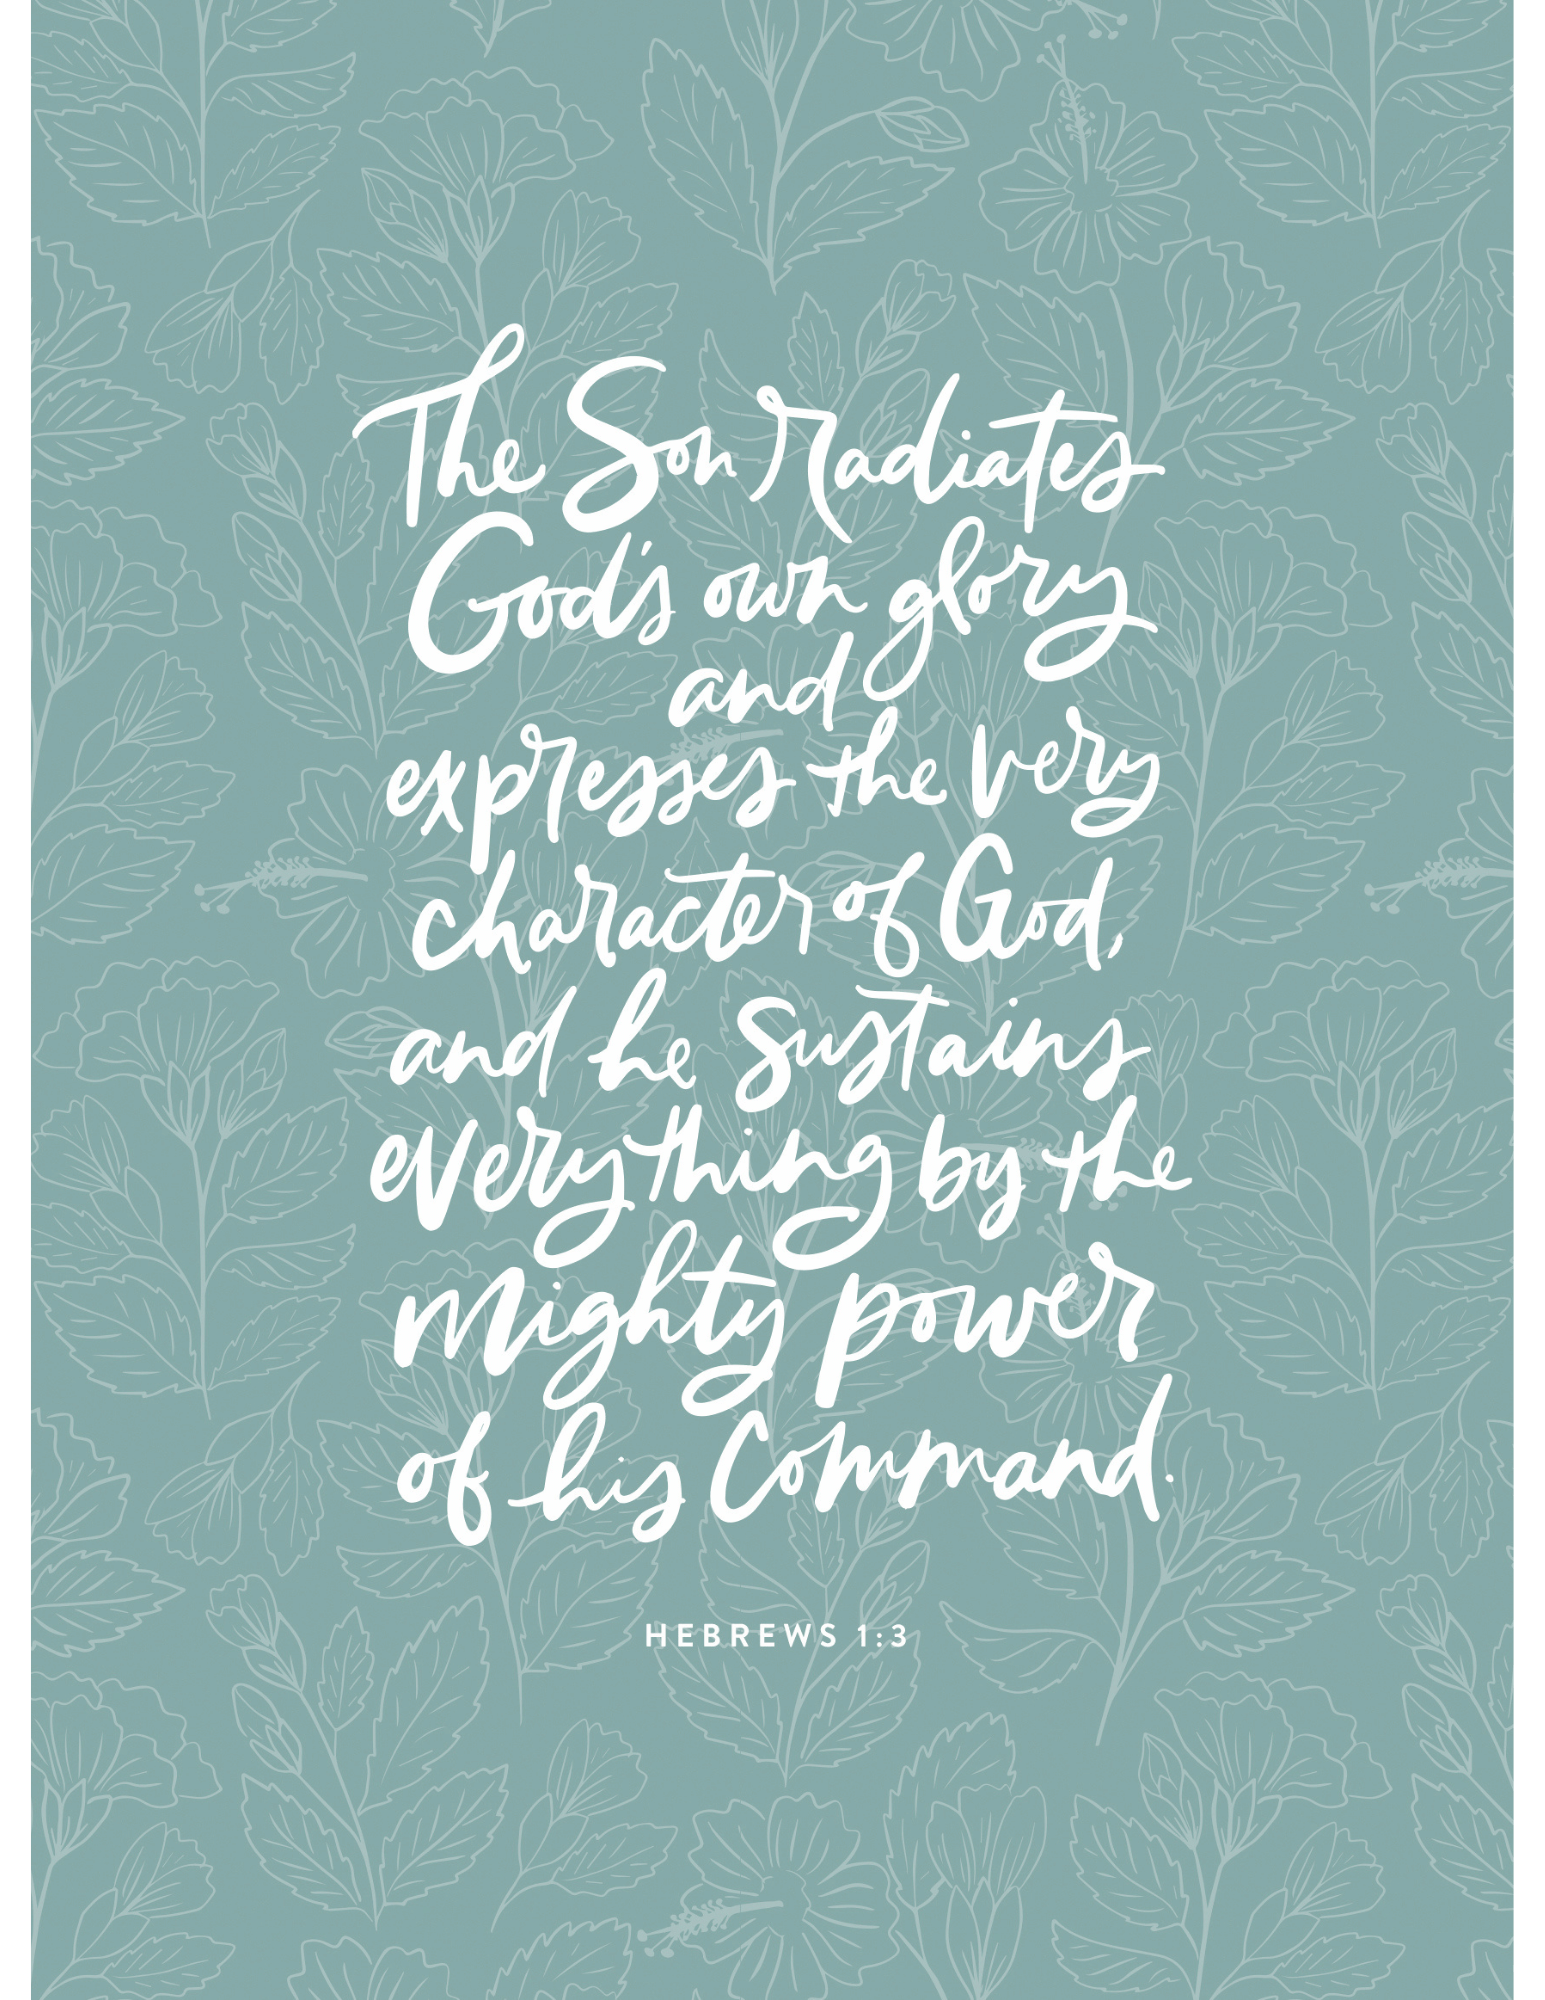 The Son radiates
God's own glory
and
expresses the very
character of God,
and he sustains
everything by the
mighty power
of his Command.
HEBREWS 1:3